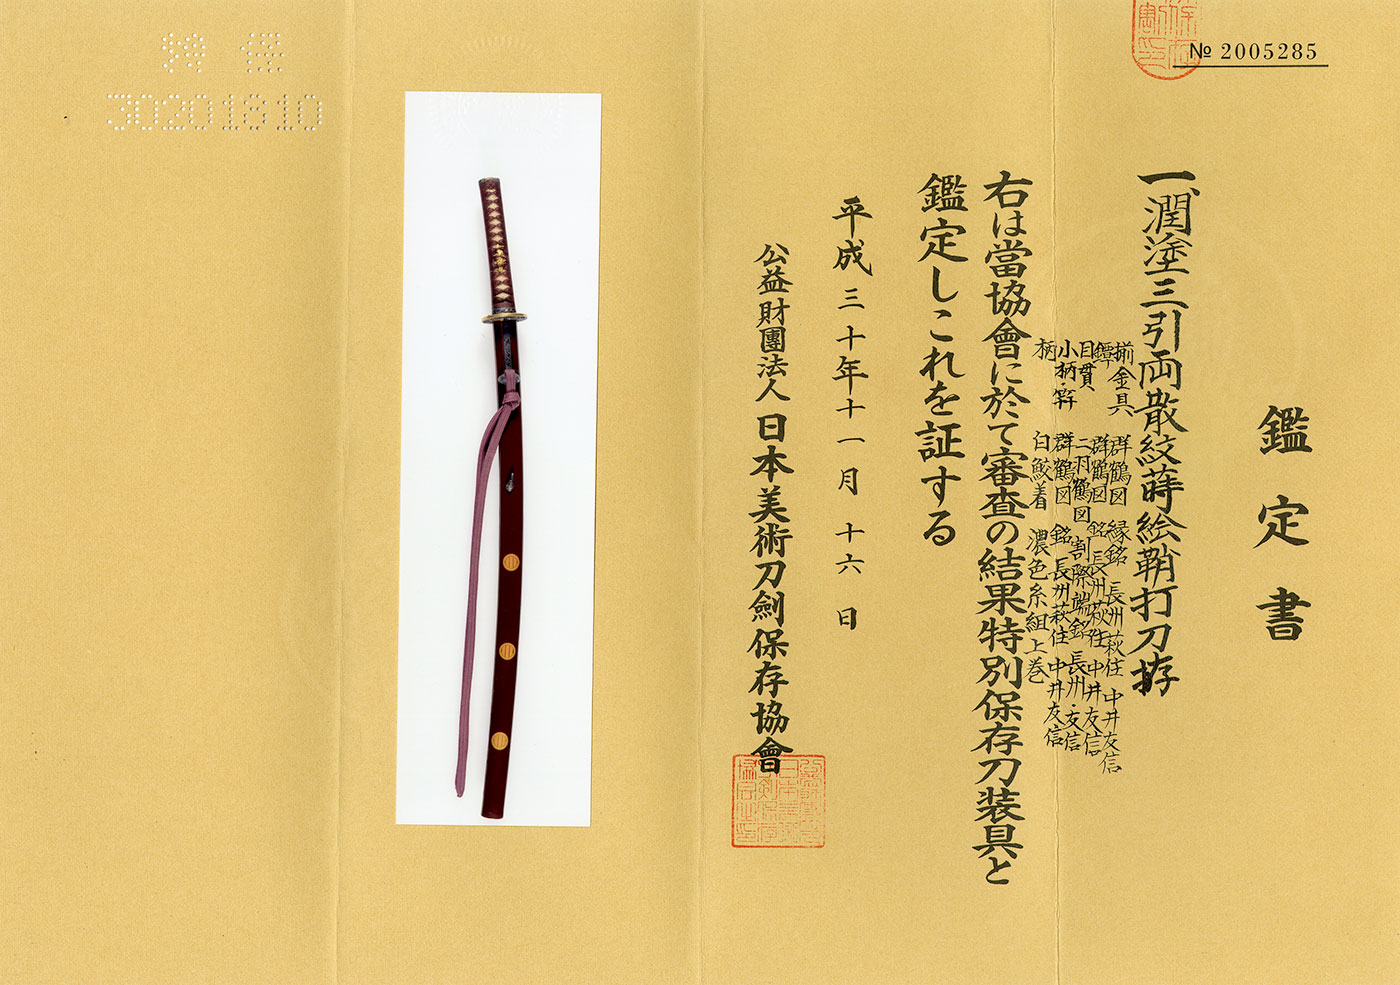 № 2005285
鑑定書
一、潤塗三引両散紋蒔絵鞘打刀拵
揃金具 群鶴図 縁銘 長州萩住 中井友信
鐔 群鶴図 銘 長州萩住 中井友信
目貫 二羽鶴図 割際端銘 長州・友信
小柄・笄 群鶴図 銘 長州萩住 中井友信
柄 白鮫着 濃色糸組上巻
右は當協會に於て審査の結果特別保存刀装具と
鑑定しこれを証する
平成三十年十一月十六日
公益財團法人 日本美術刀劍保存協會
30201810